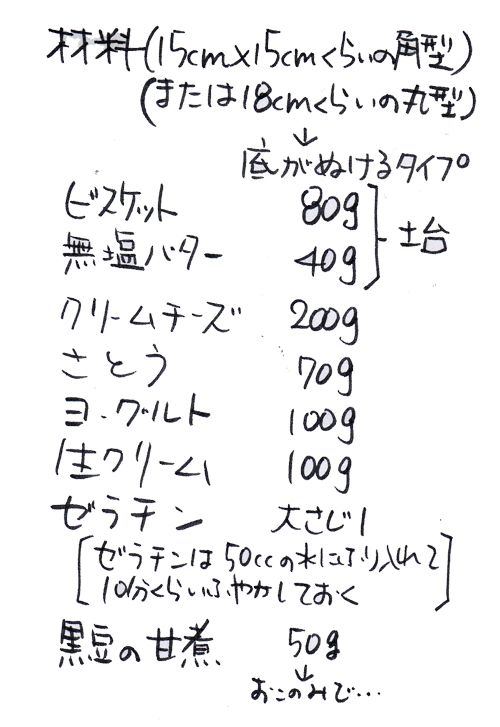 材料(15cm×15cmくらいの角型)
(または18cmくらいの丸型)
↓
底がぬけるタイプ。
ビスケット 80g
無塩バター 40g
土台
クリームチーズ 200g
さとう 70g
ヨーグルト 100g
生クリーム 100g
ゼラチン 大さじ1
[ゼラチンは50ccの水にふり入れて
10分くらいふやかしておく]
黒豆の甘煮 50g
↓
おこのみで…